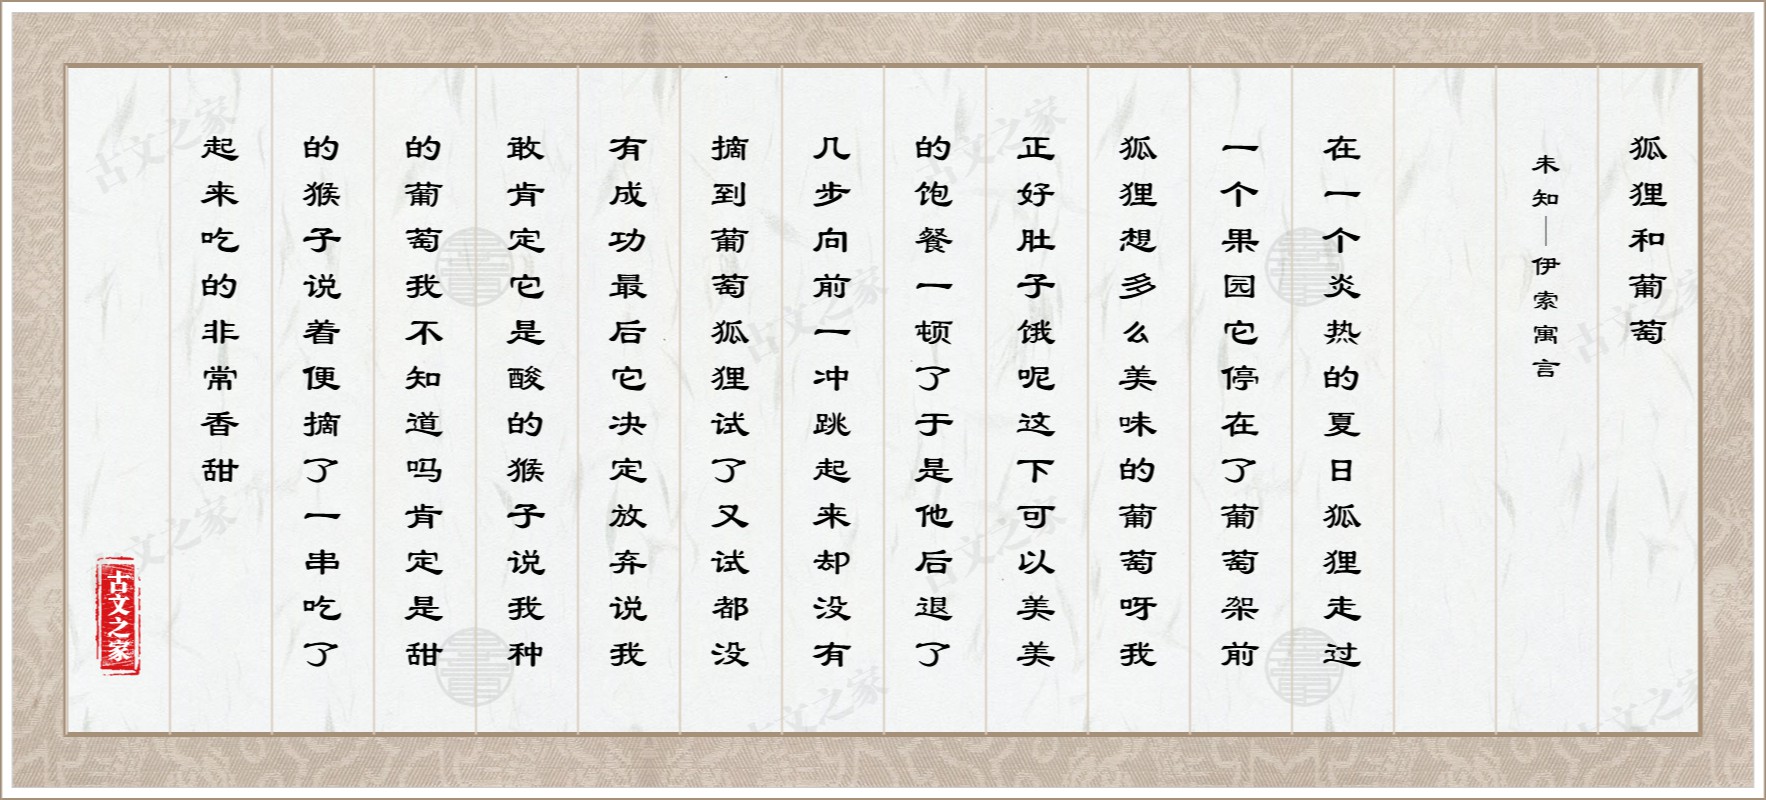 狐狸和葡萄
未知—伊索寓言
在一个炎热的夏日狐狸走过
一个果园它停在了葡萄架前
狐狸想多么美味的葡萄呀我
正好肚子饿呢这下可以美美
的饱餐一顿了于是他后退了
几步向前一冲跳起来却没有
摘到葡萄狐狸试了又试都没
有成功最后它决定放弃说我
敢肯定它是酸的猴子说我种
的葡萄我不知道吗肯定是甜
的猴子说着便摘了一串吃了
起来吃的非常香甜
古文之家